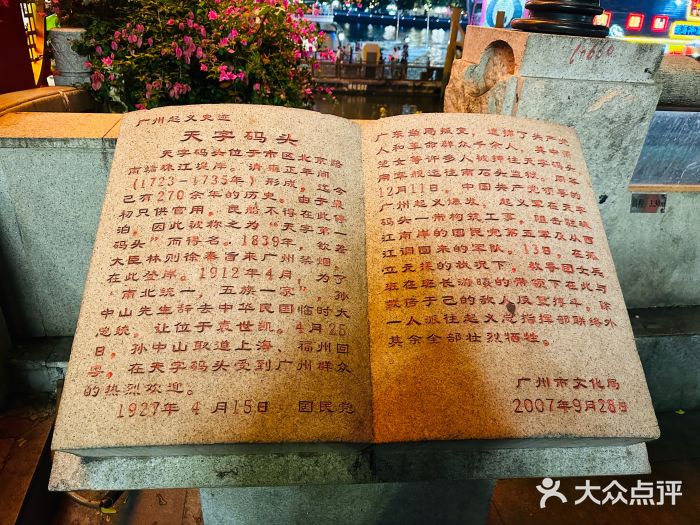 广州起义史迹
天字码头
天字码头位于市区北京路
南端珠江堤岸。清雍正年间
(1723-1735年)形成，迄今
已有270余年的历史。由于最
初只供官用，民船不得在此停
泊，因此被称之为“天字第一
码头”而得名。1839年，钦差
大臣林则徐奉旨来广州禁烟，
在此登岸。1912年4月，为了
“南北统一，五族一家”，孙
中山先生辞去中华民国临时大
总统，让位于袁世凯。4月25
日，孙中山取道上海、福州回
粤，在天字码头受到广州群众
的热烈欢迎。
1927年4月15日 国民党
广东当局叛变，逮捕了共产党
人和革命群众千余人，其中
女等许多人被押往天字码头
用
12月11日，中国共产党领导的
广州起义爆发，义军在天字
码头一带构筑工事，阻击驻
江南岸的国民党第五军及从西
江调回来的军队。13日，在孤
立无援的状况下，教导团女兵
班在班长游曦的带领下在此与
数倍于己的敌人反复搏斗，除
一人派往起义总指挥部联络外
其余全部壮烈牺牲。
广州市文化局
2007年9月28日
大众点评